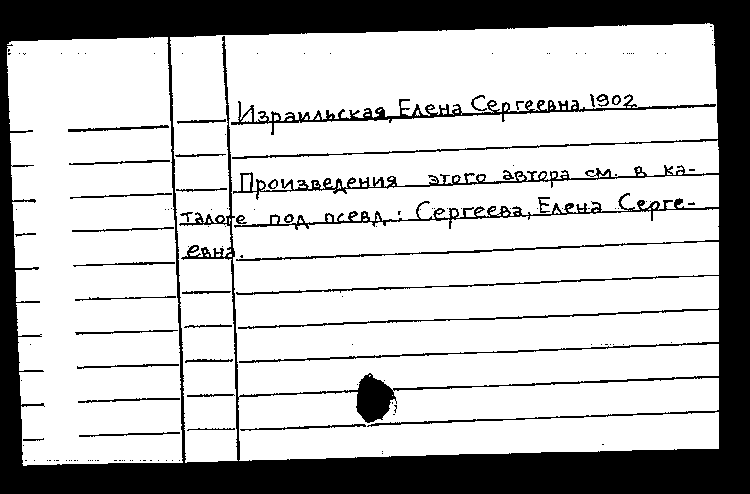 Израильская, Елена Сергеевна, 1902
Произведения этого автора см. в ка-
талоге под псевд.: Сергеева, Елена Серге-
евна.